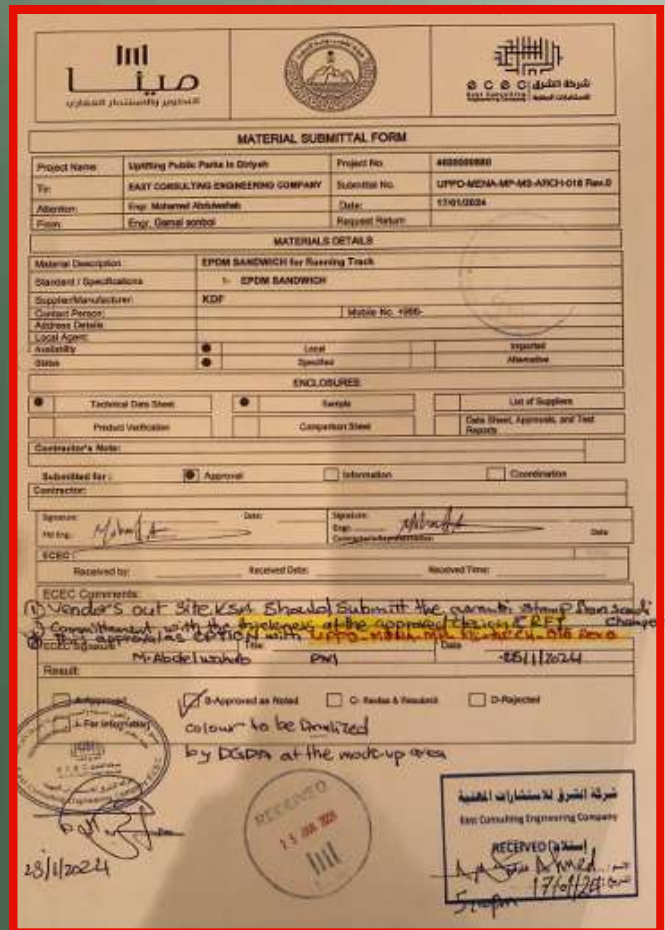 مينا
للتطوير والاستثمار العقاري
ECEC شركة الشرق
East Consulting
Engineering Company للاستشارات المهنية
MATERIAL SUBMITTAL FORM
Project Name: Uplifting Public Parks In Diriyah Project No.
To: EAST CONSULTING ENGINEERING COMPANY Submittal No. UPPD-MENA-MP-MS-ARCH-016 Rev.0
Attention: Engr. Mohamed Abdulwahab Date: 17/01/2024
From: Engr. Gamal sonbol Request Return
MATERIALS DETAILS
Material Description EPDM SANDWICH for Running Track
Standard / Specifications 1- EPDM SANDWICH
Supplier/Manufacturer: KDF
Contact Person: Mobile No. +966-
Address Details
Local Agent:
Availability Local Imported
Status Specified Alternative
ENCLOSURES
Technical Data Sheet Sample List of Suppliers
Product Verification Comparison Sheet Data Sheet, Approvals, and Test Reports
Contractor's Note:
Submitted for : Approval Information Coordination
Contractor:
Signature: Date: Signature:
PM Eng. Engr. Date
Contractor's Representative:
ECEC :
Received by: Received Date: Received Time:
ECEC Comments:
1) Vendor's out site KSA Should Submitt the stamp from Saudi
2) Committement with the thickness at the approved design & RFP
this approval as OPTION with
ECEC Signature Title: Date
M. Abdelwahab PM
Result:
A-Approved B-Approved as Noted C- Revise & Resubmit D-Rejected
For Information
colour to be finalized
by DGDA at the mock-up area
RECEIVED
شركة الشرق للاستشارات المهنية
East Consulting Engineering Company
RECEIVED إستلام
Ahmed
17/01/24